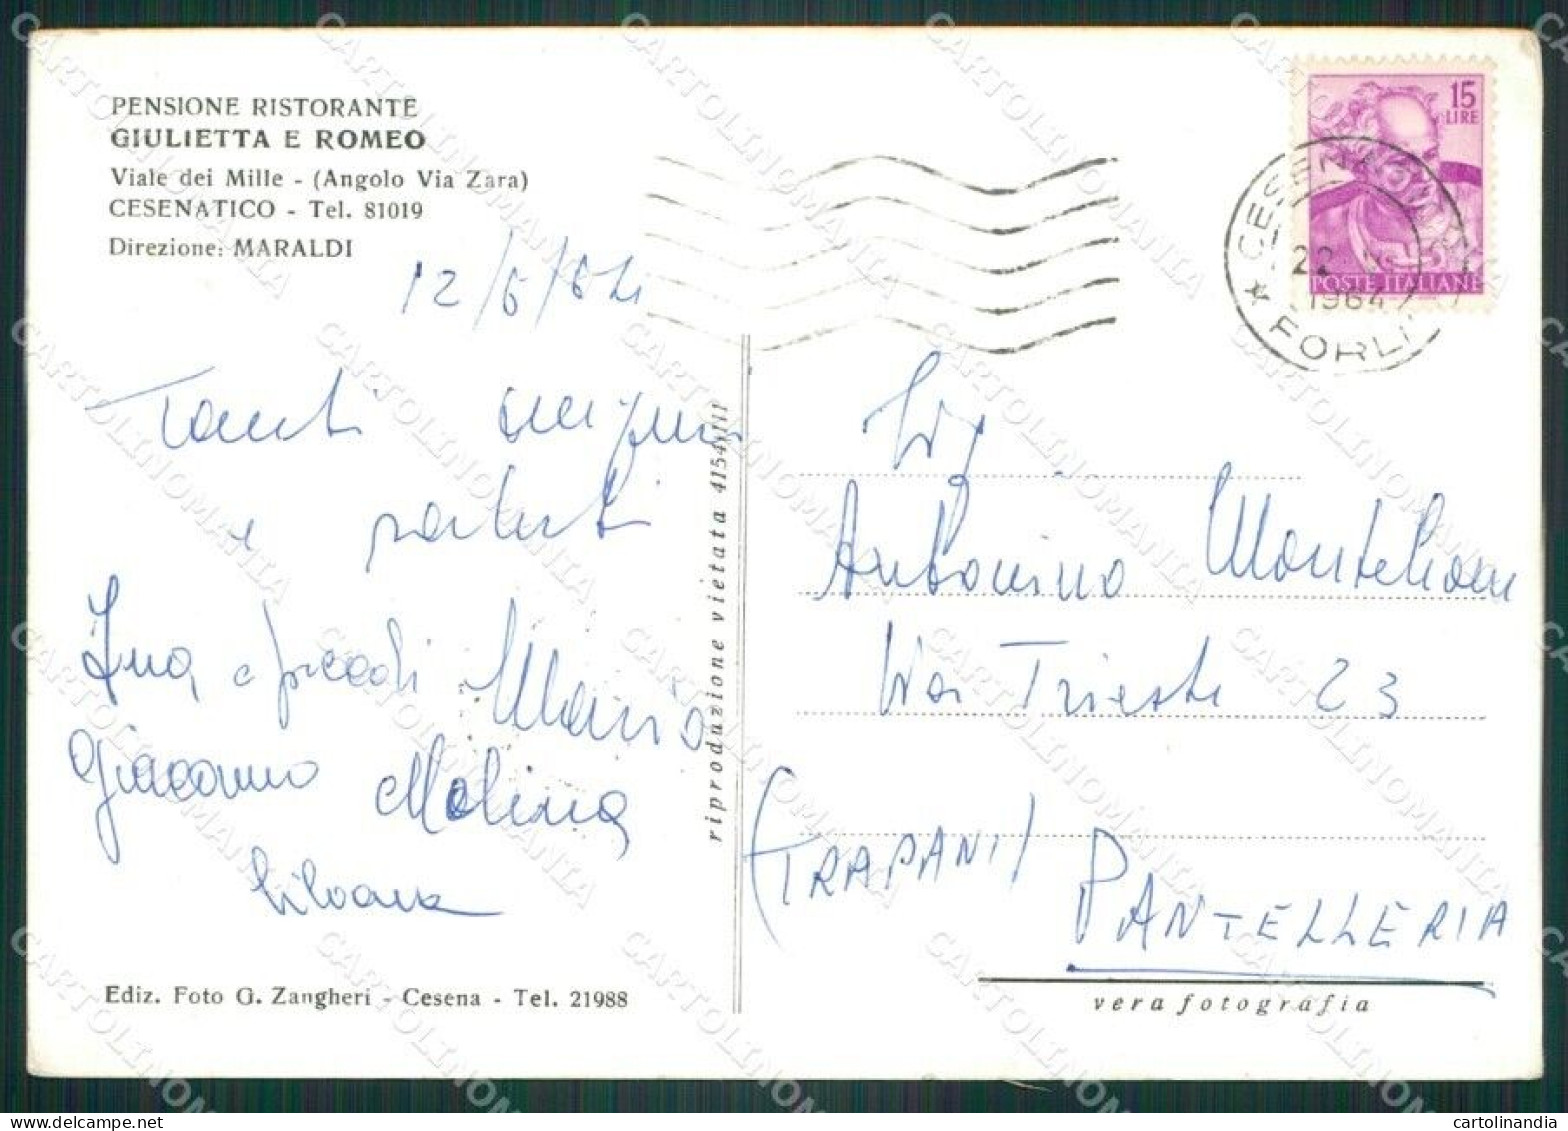 PENSIONE RISTORANTE
GIULIETTA E ROMEO
Viale dei Mille - (Angolo Via Zara)
CESENATICO - Tel. 81019
Direzione: MARALDI
12/6/64
Tanti auguri
e saluti
Ina e Mario
Giacomo Molina
Silvana
Ediz. Foto G. Zangheri - Cesena - Tel. 21988
riproduzione vietata
15
LIRE
POSTE ITALIANE
22
1964
FORLI
Sig
Antonino
Via Trieste 23
(TRAPANI)
PANTELLERIA
vera fotografia
CARTOLINOMANIA
cartolinandia